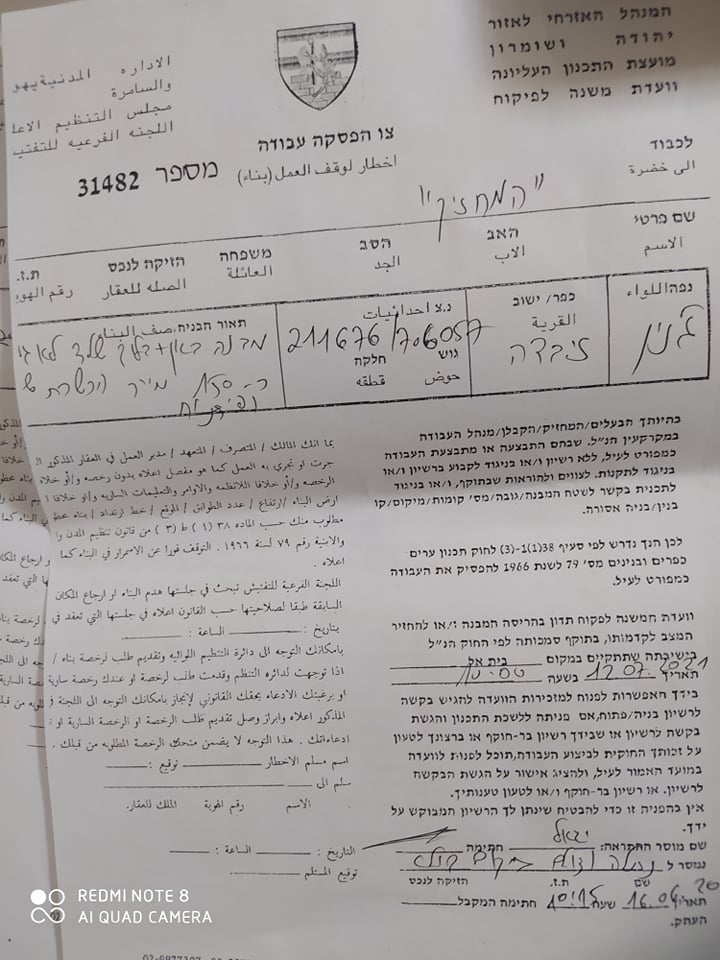 המנהל האזרחי לאזור
יהודה ושומרון
מועצת התכנון העליונה
וועדת משנה לפיקוח
الاداره المدنية يهو
والسامرة
مجلس التنظيم الاعلا
اللجنه الفرعيه للتفتيش
צו הפסקה עבודה
اخطار لوقف العمل (بناء)
מספר 31482
לכבוד
الى حضرة
"המחזיק"
שם פרטי האב הסב משפחה הזיקה לנכס ת.ז.
الاسم الاب الجد العائلة الصله للعقار رقم الهويه
נפה/اللواء
ג'נין
כפר/ישוב
القرية
זיבדה
נ.צ احداثيات
211676/706057
גוש חלקה
حوض قطعه
תאור הבניה/صف البناء
בהיותך הבעלים/המחזיק/הקבלן/מנהל העבודה
במקרקעין הנ"ל. שבהם התבצעה או מתבצעת העבודה
כמפורט לעיל, ללא רשיון ו/או בניגוד לקבוע ברשיון ו/או
בניגוד לתקנות. לצווים ולהוראות שבתוקף, ו/או בניגוד
לתכנית בקשר לשטח המבנה/גובה/מס' קומות/מיקום/קו
בנין/בניה אסורה.
לכן הנך נדרש לפי סעיף 38(1)(-3) לחוק תכנון ערים
כפרים ובנינים מס' 79 לשנת 1966 להפסיק את העבודה
כמפורט לעיל.
וועדה המשנה לפקוח תדון בהריסה המבנה ו/או להחזיר
המצב לקדמותו, בתוקף סמכותה לפי החוק הנ"ל
בישיבתה שתתקיים במקום בית אל
תאריך 12.07.2021 בשעה
בידך האפשרות לפנות למזכירות הוועדה להגיש בקשה
לרשיון בניה/פתוח, אם פניתה ללשכת התכנון והגשת
בקשה לרשיון או שבידך רשיון בר-חוקף או ברצונך לטעון
על זכותך החוקית לביצוע העבודה, תוכל לפנות לוועדה
במועד האמור לעיל, ולהציג אישור על הגשת הבקשה
לרשיון. או רשיון בר-חוקף ו/או לטעון טענותיך.
אין בהפניה זו כדי להבטיח שינתן לך הרשיון המבוקש על
ידך.
שם מוסר התתראה: יגאל חתימה
נמסר ל
שם ת.ז. הזיקה לנכס
תאריך 16.06.20 שעה 10:15 חתימה המקבל
העתק.
بما انك المالك / المتصرف / المتعهد / مدير العمل في العقار المذكور
جرت او تجري به العمل كما هو مفصل اعلاه بدون رخصه و/او خلافا
الرخصه و/او خلافا للانظمه والاوامر والتعليمات الساريه و/او خلافا
ارض البناء / ارتفاع / عدد الطوابق / الموقع / خط ارتداد / بناء
مطلوب منك حسب الماده ٣٨ (١) ط (٣) من قانون تنظيم المدن
والابنية رقم ٧٩ لسنة ١٩٦٦. التوقف فورا عن الاسمرار في البناء كما
اعلاه .
اللجنة الفرعية للتفتيش تبحث في جلستها هدم البناء او ارجاع المكان
السابقة طبقا لصلاحيتها حسب القانون اعلاه في جلستها التي تعقد في
بتاريخ : الساعة :
بامكانك التوجه الى دائرة التنظيم اللوائيه وتقديم طلب لرخصة بناء /
اذا توجهت لدائره التنظم وقدمت طلب لرخصة او عندك رخصة سارية
او برغبتك الادعاء بحقك القانوني لإنجاز بامكانك التوجه الى اللجنة
المذكور اعلاه وابراز وصل تقديم طلب الرخصة او الرخصة الساريه او
ادعاءاتك . هذا التوجه لا يضمن منحك الرخصة المطلوبه من قبلك .
اسم مسلم الاخطار توقيع :
سلم الى
الاسم رقم الهوية الملك للعقار.
التاريخ : الساعة :
توقيع المستلم
REDMI NOTE 8
AI QUAD CAMERA